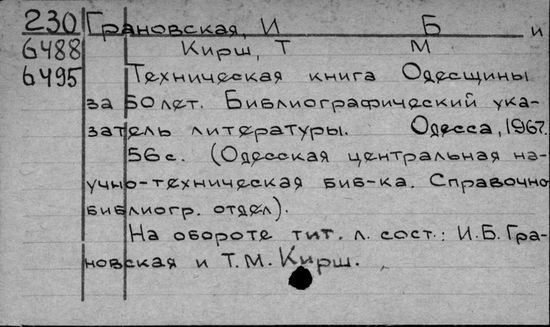 230 Грановская, И Б и
6488 Кирш, Т М
6495 Техническая книга Одесщины
за 50 лет. Библиографический ука-
затель литературы. Одесса, 1967.
56 с. (Одесская центральная на-
учно-техническая биб-ка. Справочно
библиогр. отдел).
На обороте тит. л. сост.: И.Б. Гра-
новская и Т.М. Кирш.